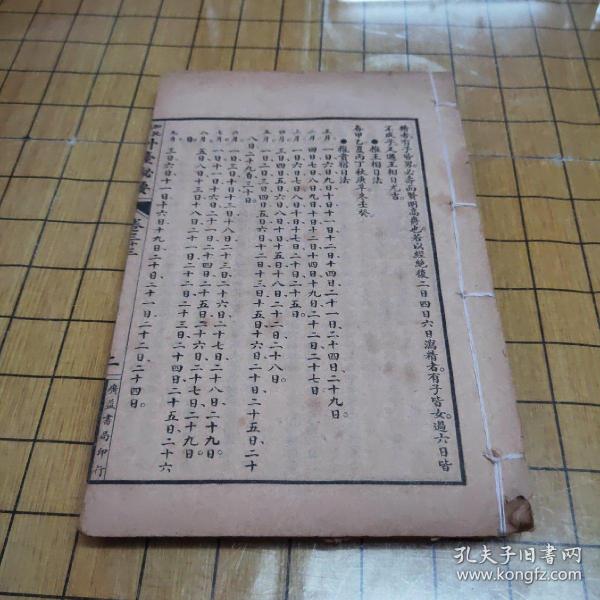 精者有子皆男必壽而賢明高爵也若以經絕後二日四日六日瀉精者。有子皆女。過六日皆
不成子又遇王相日尤吉
●推王相日法
春甲乙夏丙丁秋庚辛冬壬癸
●推貴宿日法
正月 一日六日九日十日十一日十二日十四日二十一日二十四日二十九日
二月 四日七日八日九日十日十二日十四日十九日二十二日二十七日
三月 一日六日七日八日十日十七日二十日二十五日
四月 三日四日五日六日八日十日十五日十八日二十二日二十八日
五月 一日二日三日四日五日六日十二日十三日十五日十六日二十日二十五日二十
九日三十日。
六月 一日三日十日十三日十八日二十三日二十六日二十七日二十八日二十九日
七月 一日十一日十六日二十一日二十四日二十五日二十六日二十七日二十九日
八月 五日八日十日十三日十八日二十一日二十二日二十三日二十四日二十五日二十六
九月 三日六日十一日十六日十九日二十日二十一日二十二日二十四日。
外臺秘要 卷三十三
二
廣益書局印行
孔夫子旧书网
www.kongfz.com